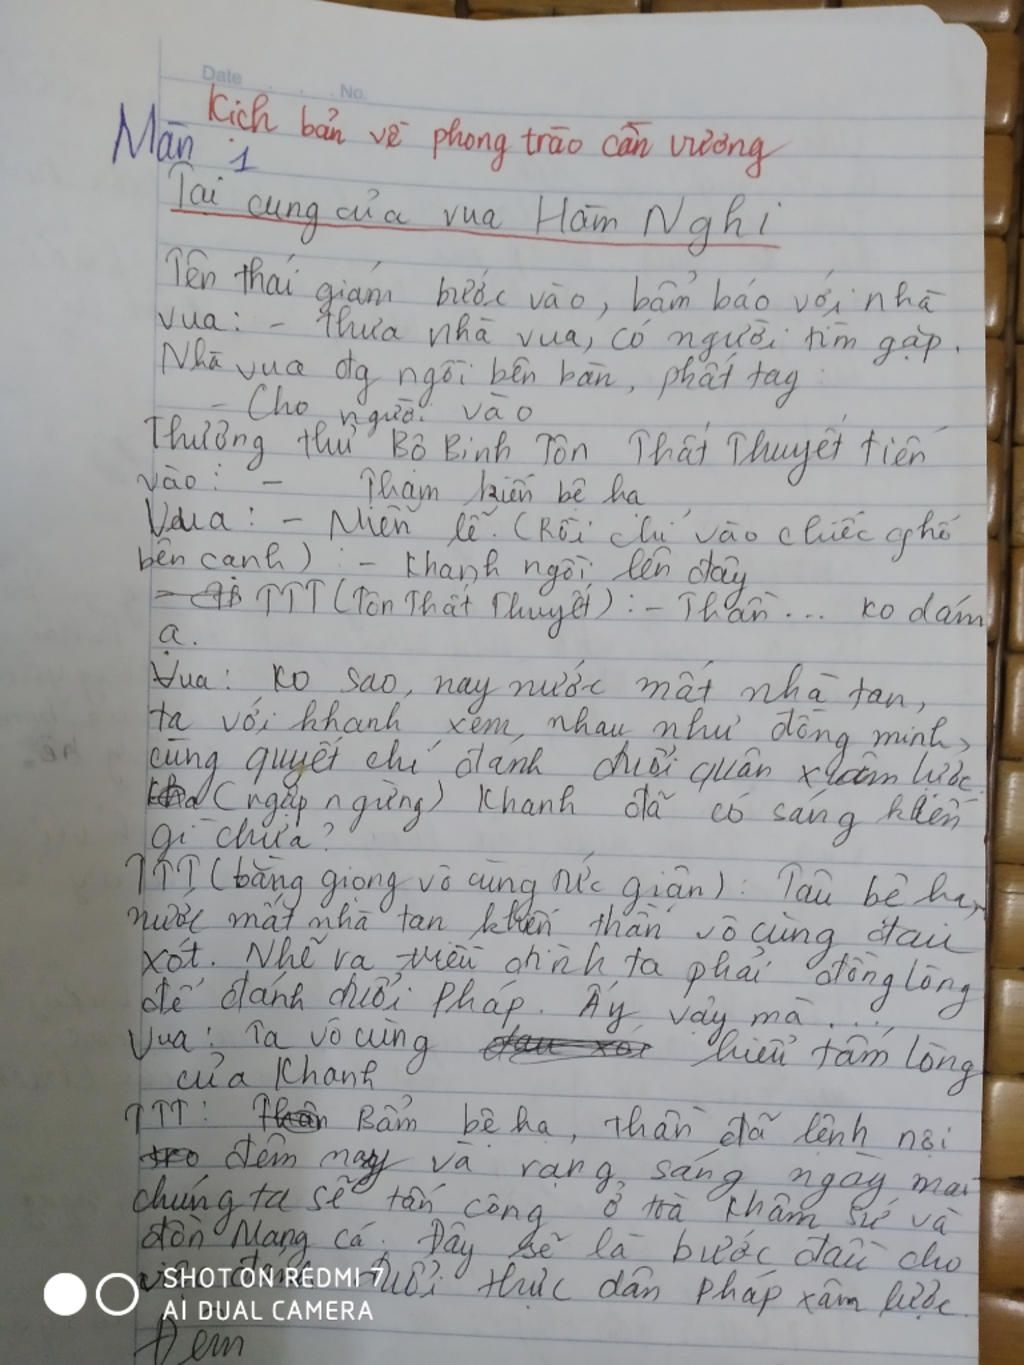 Date No.
Kịch bản về phong trào cần vương
Màn 1
Tại cung của vua Hàm Nghi
Tên thái giám bước vào, bẩm báo với nhà
vua: - thưa nhà vua, có người tìm gặp.
Nhà vua đg ngồi bên bàn, phất tay
- Cho người vào
Thượng thư Bộ Binh Tôn Thất Thuyết tiến
vào: - Tham kiến bệ hạ
Vua: - Miễn lễ. (Rồi chỉ vào chiếc ghế
bên cạnh): - Khanh ngồi lên đây
TTT (Tôn Thất Thuyết): - Thần... ko dám
ạ.
Vua: ko sao, nay nước mất nhà tan,
ta với khanh xem nhau như đồng minh,
cùng quyết chí đánh đuổi quân xâm lược.
(ngập ngừng) Khanh đã có sáng kiến
gì chưa?
TTT (bằng giọng vô cùng tức giận): Tâu bệ hạ,
nước mất nhà tan khiến thần vô cùng đau
xót. Nhẽ ra triều đình ta phải đồng lòng
để đánh đuổi Pháp. Ấy vậy mà ...
Vua: Ta vô cùng đau xót hiểu tấm lòng
của Khanh
TTT: Thần Bẩm bệ hạ, thần đã lệnh nội
đêm nay và rạng sáng ngày mai
chúng ta sẽ tấn công ở toà khâm sứ và
đồn Mang cá. Đây sẽ là bước đầu cho
đuổi thực dân Pháp xâm lược.
Đem
SHOT ON REDMI 7
AI DUAL CAMERA